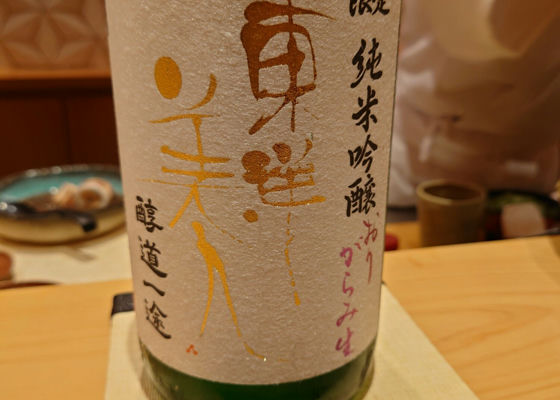 限定 純米吟醸
おりがらみ生
東洋
美人
醇道一途